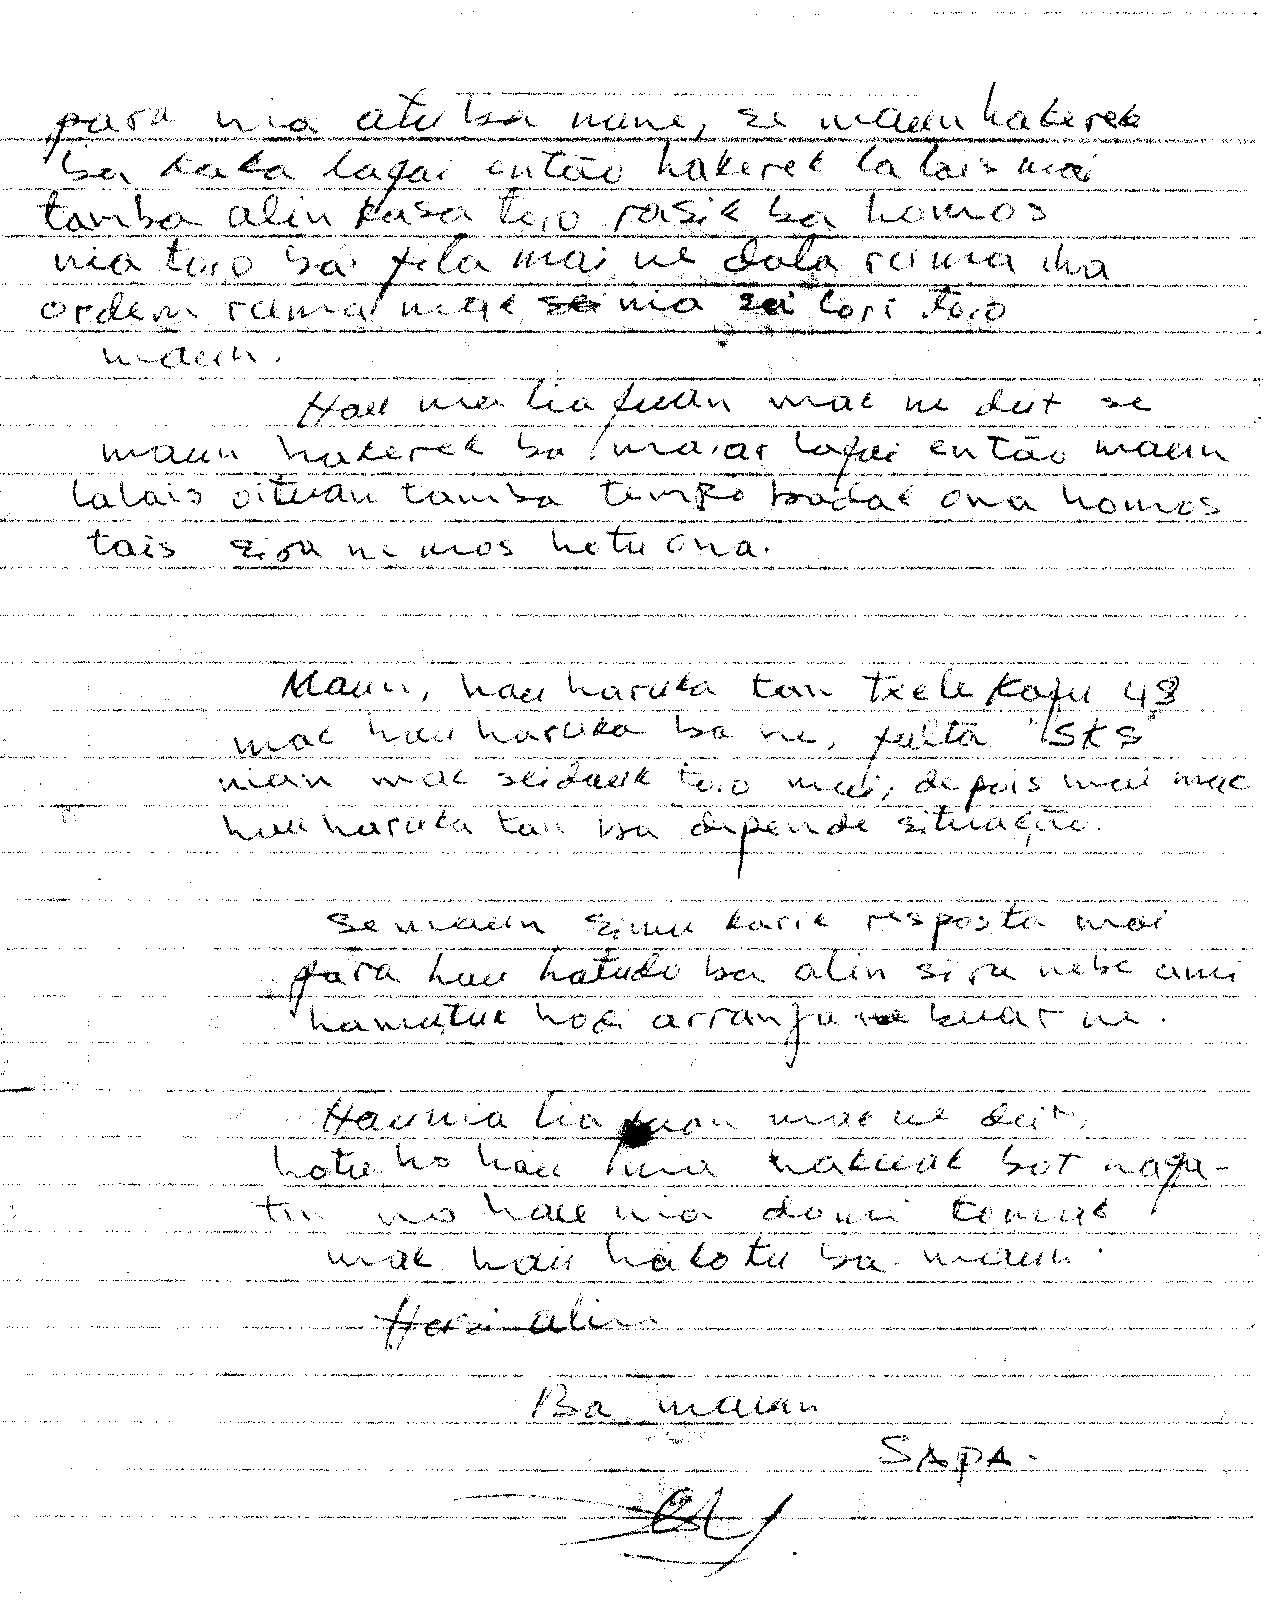 para nia atu ba nune, se maun hakerek
ba kaka lafai então hakerek lalais mai
tamba alin kasa toio rasik ba homos
nia toio ba fila mai ne dala ruma iha
ordem ruma mak se nia sei lori toio
maun.
Hau nia liafuan mak ne deit se
maun hakerek ba maiar lafai então maun
lalais oituan tamba tempo badak ona homos
tais sira ne mos hotu ona.
Maun, hau haruka tan kafu 48
mak hau haruka ba ne, falta "SKS"
nian mak seidauk toio mai, depois mai mak
hau haruka tan ba depende situação.
se maun simu karik resposta mai
para hau hatudo ba alin sira nebe ami
hamutuk hodi arranju ne.
Hau nia liafuan mak ne deit,
hotu ho hau nia hakuak bot nafa-
tin no hau nia domi tomak
mak hau hakotu ba maun.
Ba maun
SAPA.